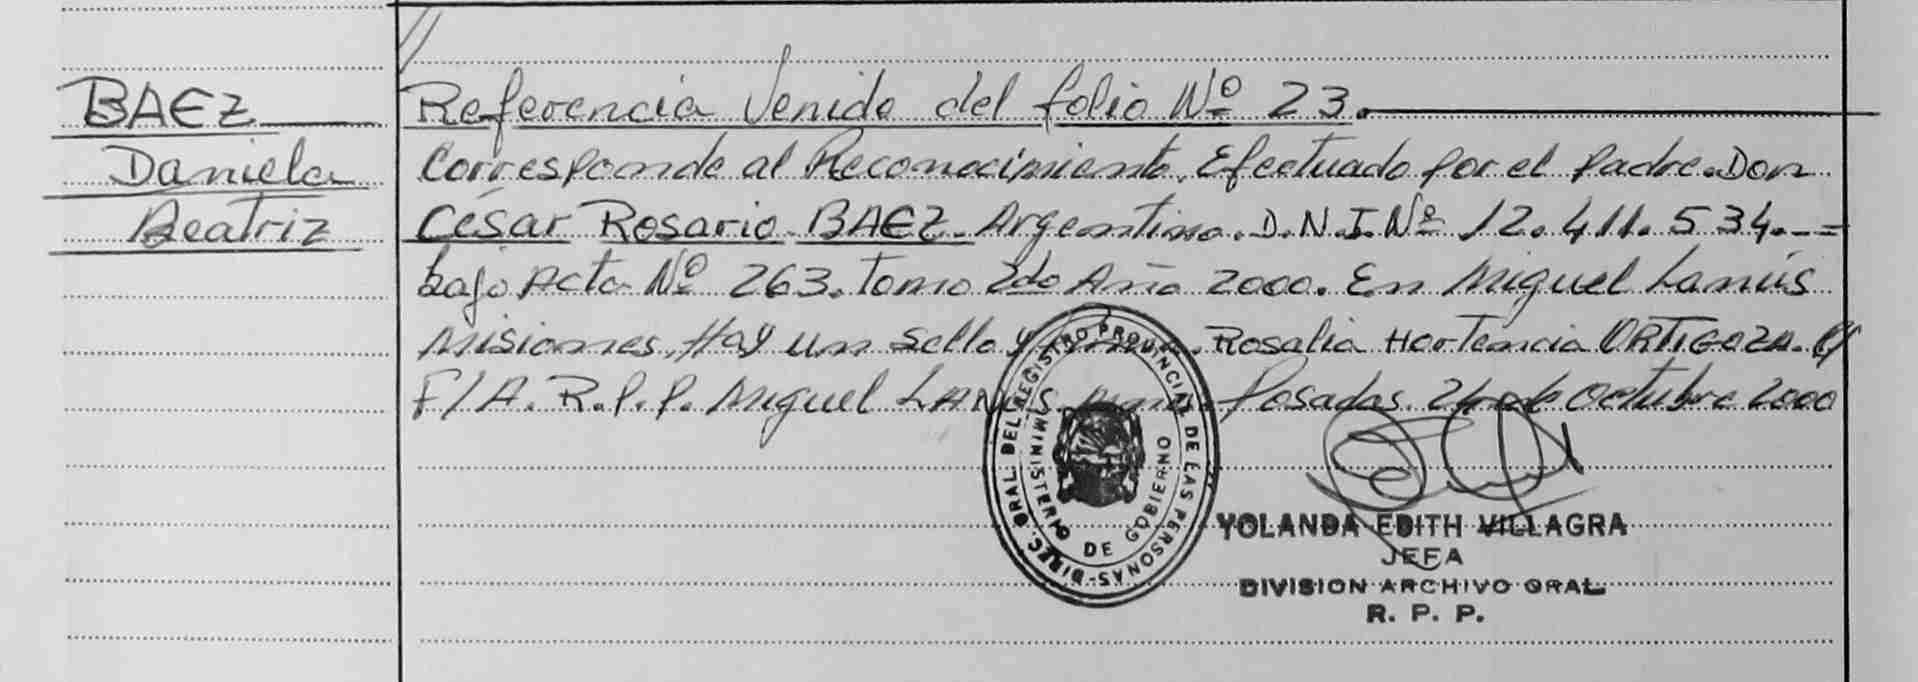 BAEZ
Daniela
Beatriz
//
Referencia Venido del folio Nº 23.
Corresponde al Reconocimiento. Efectuado por el padre. Don
César Rosario BAEZ. Argentino. D.N.I. Nº 12.411.534.-=
bajo Acta Nº 263. Tomo 2do Año 2000. En Miguel Lanús
Misiones. Hay un sello y firma. Rosalia Hortencia ORTIGOZA.
F/A. R.P.P. Miguel LANUS. Posadas. 24 de Octubre 2000
DIREC. GRAL. DEL REGISTRO PROVINCIAL DE LAS PERSONAS-
MINISTERIO DE GOBIERNO
YOLANDA EDITH VILLAGRA
JEFA
DIVISION ARCHIVO GRAL.
R. P. P.